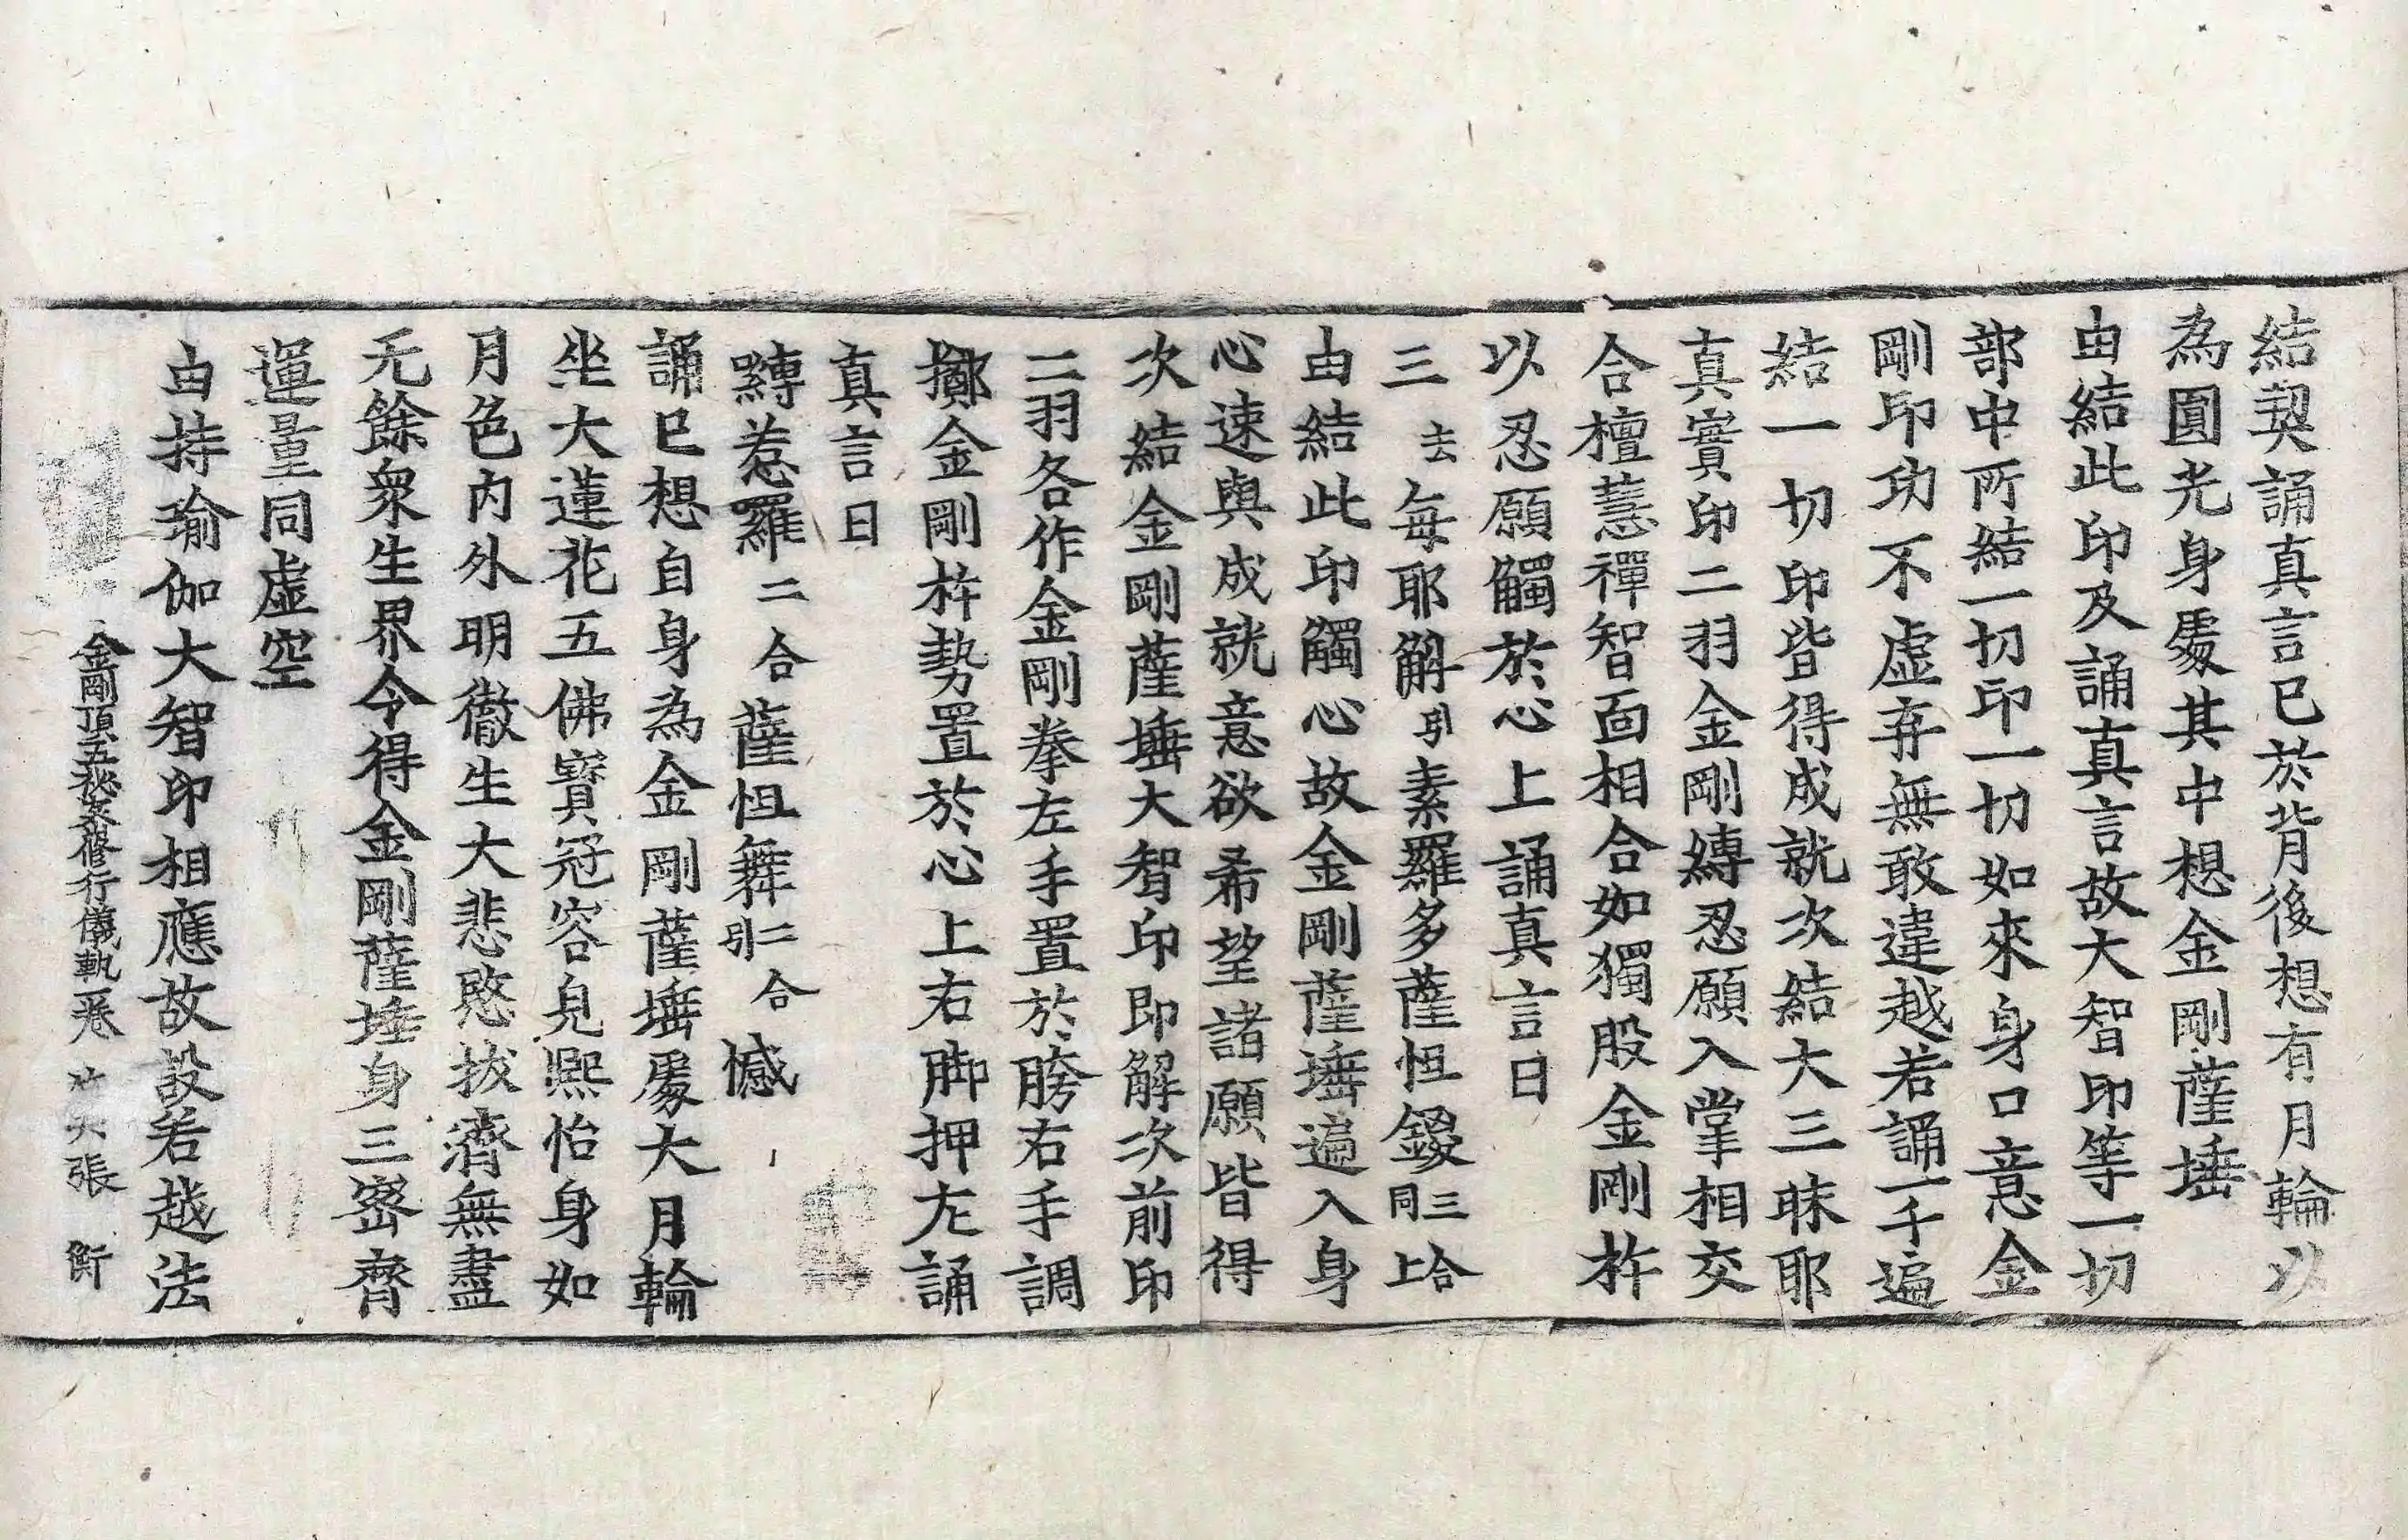 結契誦真言已於背後想有月輪以
為圓光身處其中想金剛薩埵
由結此印及誦真言故大智印等一切
部中所結一切印一切如來身口意金
剛印功不虛弃無敢違越若誦一千遍
結一切印皆得成就次結大三昧耶
真實印二羽金剛縛忍願入掌相交
合檀慧禪智面相合如獨股金剛杵
以忍願觸於心上誦真言曰
三去毎耶解引素羅多薩怛鑁三合同上
由結此印觸心故金剛薩埵遍入身
心速與成就意欲希望諸願皆得
次結金剛薩埵大智印即解次前印
二羽各作金剛拳左手置於胯右手調
擲金剛杵勢置於心上右脚押左誦
真言曰
嚩惹羅二合薩怛舞二合引憾
誦已想自身為金剛薩埵處大月輪
坐大蓮花五佛寶冠容皃熙怡身如
月色內外明徹生大悲愍拔濟無盡
无餘衆生界令得金剛薩埵身三密齊
運量同虛空
由持瑜伽大智印相應故設若越法
金剛頂五秘密修行儀軌一卷 張 衡